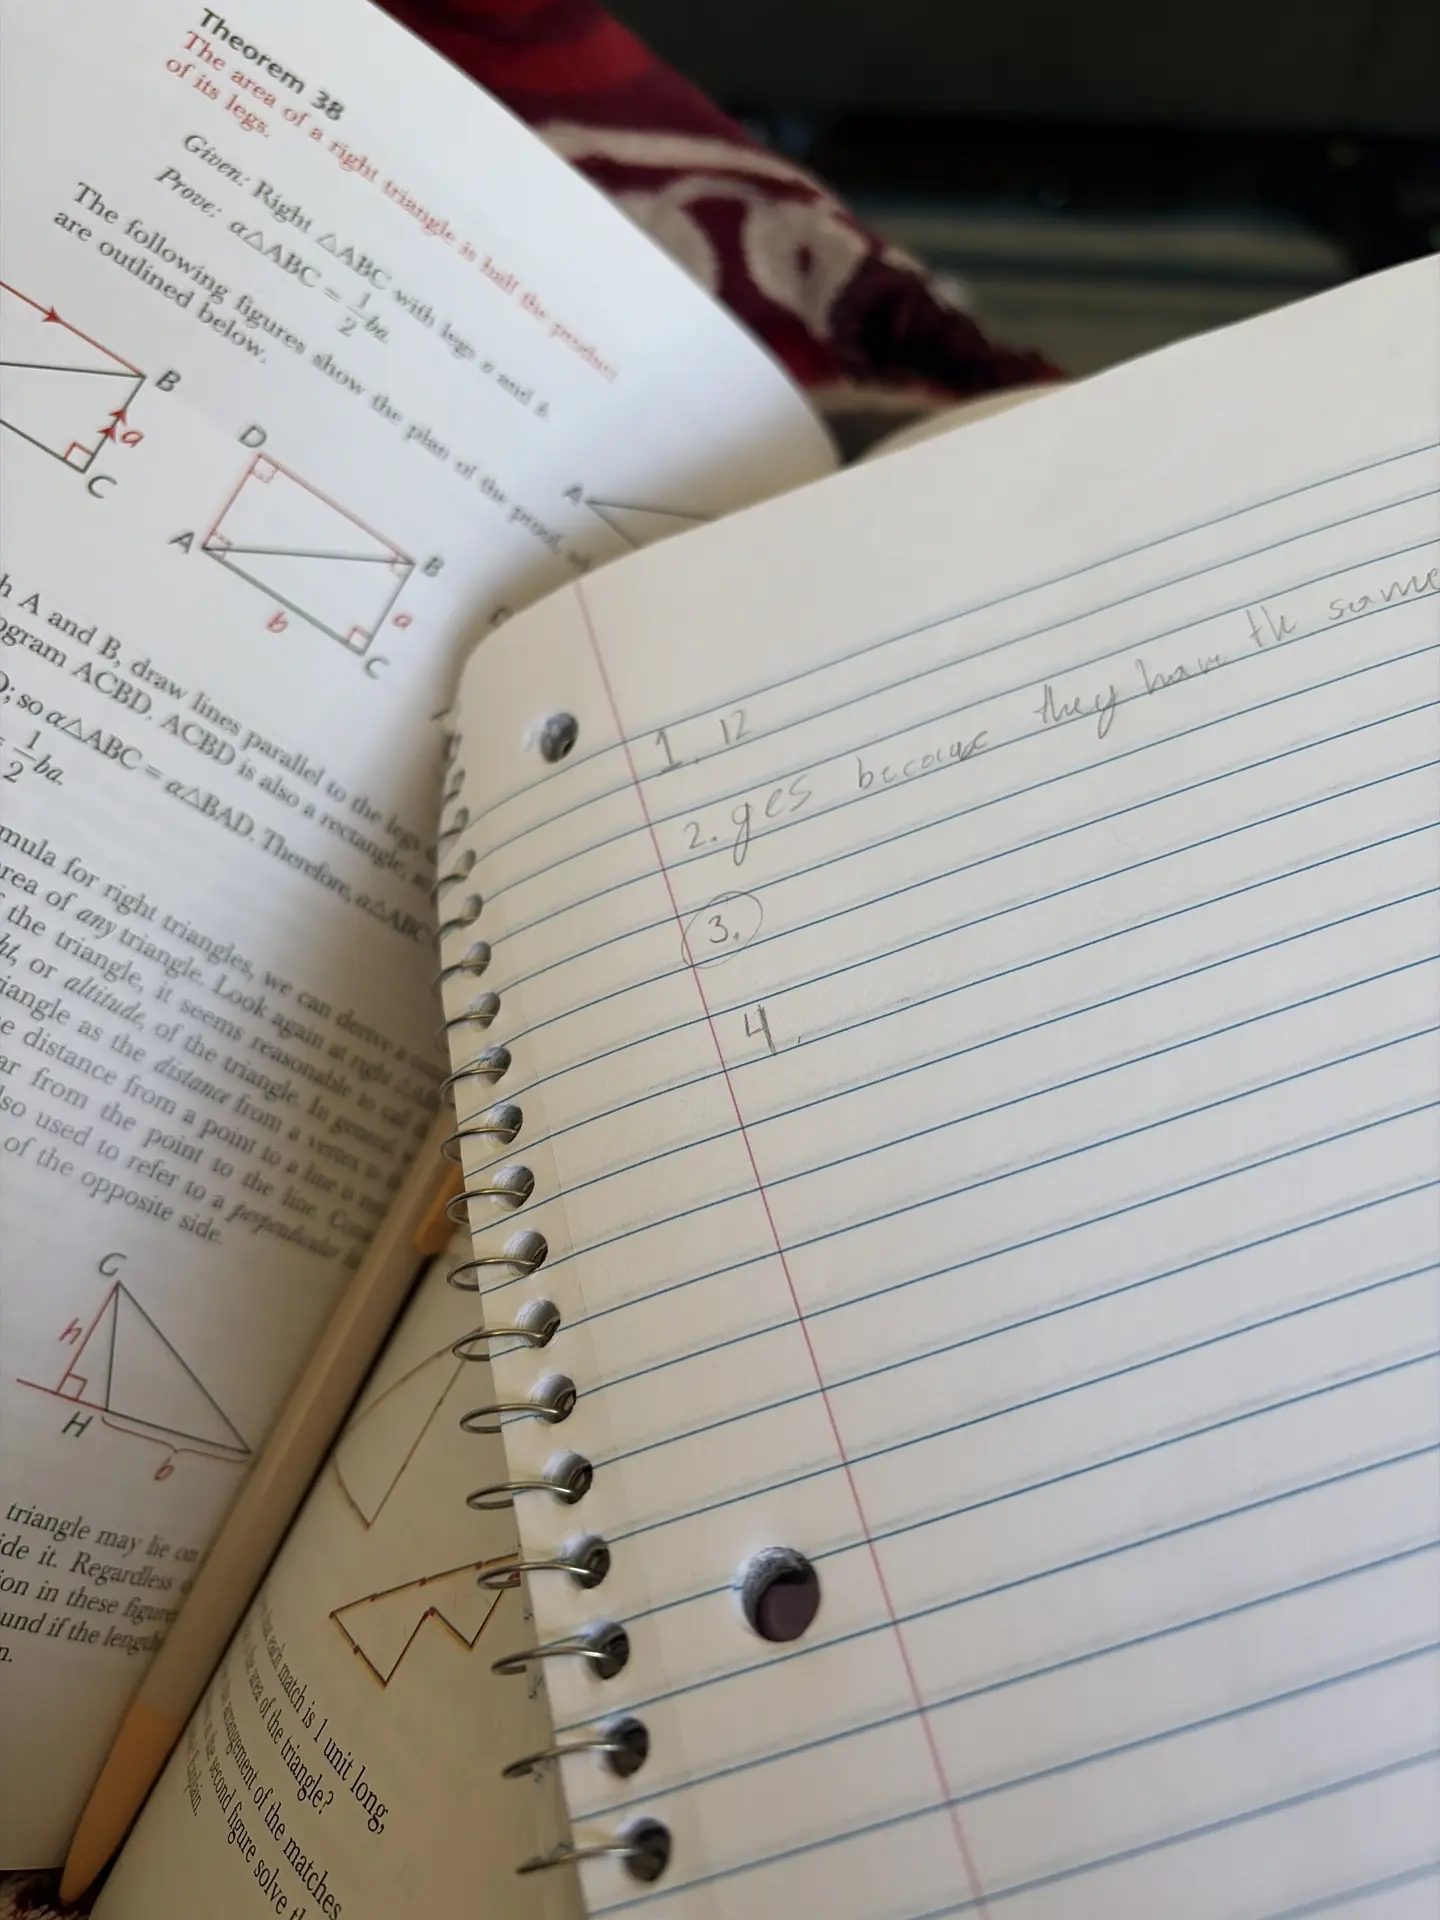 Theorem 38
The area of a right triangle is half the product
of its legs.
Given: Right △ABC with legs a and b.
Prove: α△ABC = 1/2 ba.
The following figures show the plan of the proof,
are outlined below.
B
a
C
D
A
B
b
a
C
A
h A and B, draw lines parallel to the legs
ogram ACBD. ACBD is also a rectangle,
D; so α△ABC = α△BAD. Therefore, α△ABC
= 1/2 ba.
mula for right triangles, we can derive a
rea of any triangle. Look again at right △AB
f the triangle, it seems reasonable to call
ht, or altitude, of the triangle. In general,
iangle as the distance from a vertex to
e distance from a point to a line
ar from the point to the line.
so used to refer to a perpendicular
of the opposite side.
C
h
H
b
triangle may lie on
ide it. Regardless
ion in these figure
und if the length
n.
each match is 1 unit long,
the area of the triangle?
arrangement of the matches
the second figure solve th
Explain.
1. 12
2. yes because they have th same
3.
4.